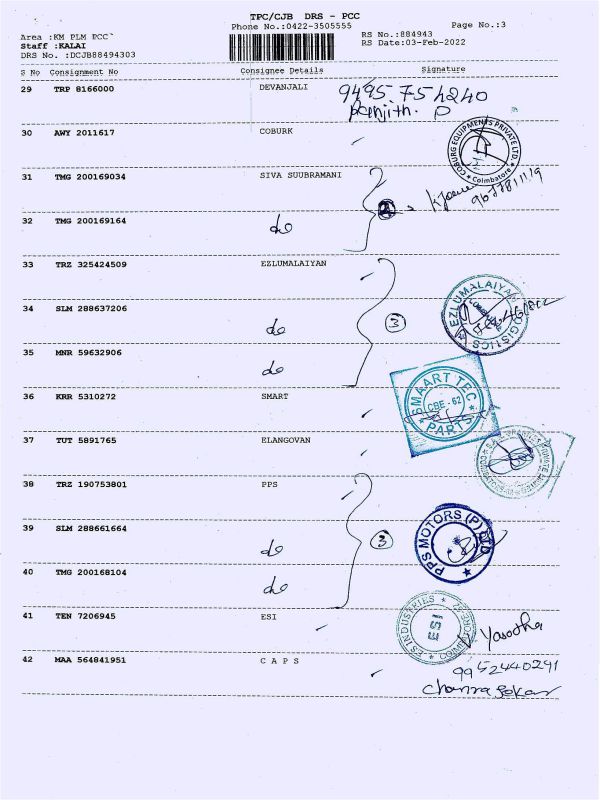 TPC/CJB DRS - PCC
Phone No.:0422-3505555
Page No.:3
Area :KM PLM PCC`
Staff :KALAI
DRS No. :DCJB88494303
RS No.:884943
RS Date:03-Feb-2022
S No Consignment No Consignee Details Signature
29 TRP 8166000 DEVANJALI
9495754240
Renjith. P
30 AWY 2011617 COBURK
COBURG EQUIPMENTS PRIVATE LTD. Coimbatore
31 TMG 200169034 SIVA SUUBRAMANI
9677811119
32 TMG 200169164 do
33 TRZ 325424509 EZLUMALAIYAN
34 SLM 288637206 do
3
EZLUMALAIYAN LOGISTICS
35 MNR 59632906 do
36 KRR 5310272 SMART
SMAART TEC PARTS
CBE - 62
37 TUT 5891765 ELANGOVAN
38 TRZ 190753801 PPS
39 SLM 288661664 do
3
PPS MOTORS (P) LTD
40 TMG 200168104 do
41 TEN 7206945 ESI
ES INDUSTRIES
Yasotha
42 MAA 564841951 C A P S
9952440291
Chandrasekar